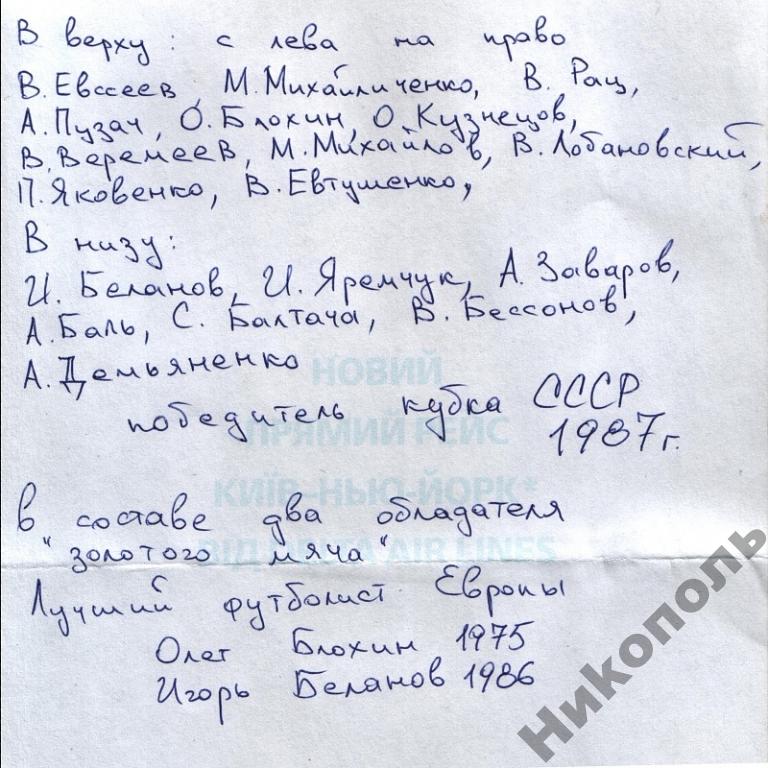 В верху: с лева на право
В. Евсеев, М. Михайличенко, В. Рац,
А. Пузач, О. Блохин, О. Кузнецов,
В. Веремеев, М. Михайлов, В. Лобановский,
П. Яковенко, В. Евтушенко,
В низу:
И. Беланов, И. Яремчук, А. Заваров,
А. Баль, С. Балтача, В. Бессонов,
А. Демьяненко
НОВИЙ
победитель кубка СССР
ПРЯМИЙ РЕЙС
1987 г.
КИЇВ-НЬЮ-ЙОРК*
в составе два обладателя
"золотого мяча"
ВІД DELTA AIR LINES
Лучший футболист Европы
Олег Блохин 1975
Игорь Беланов 1986
Никополь